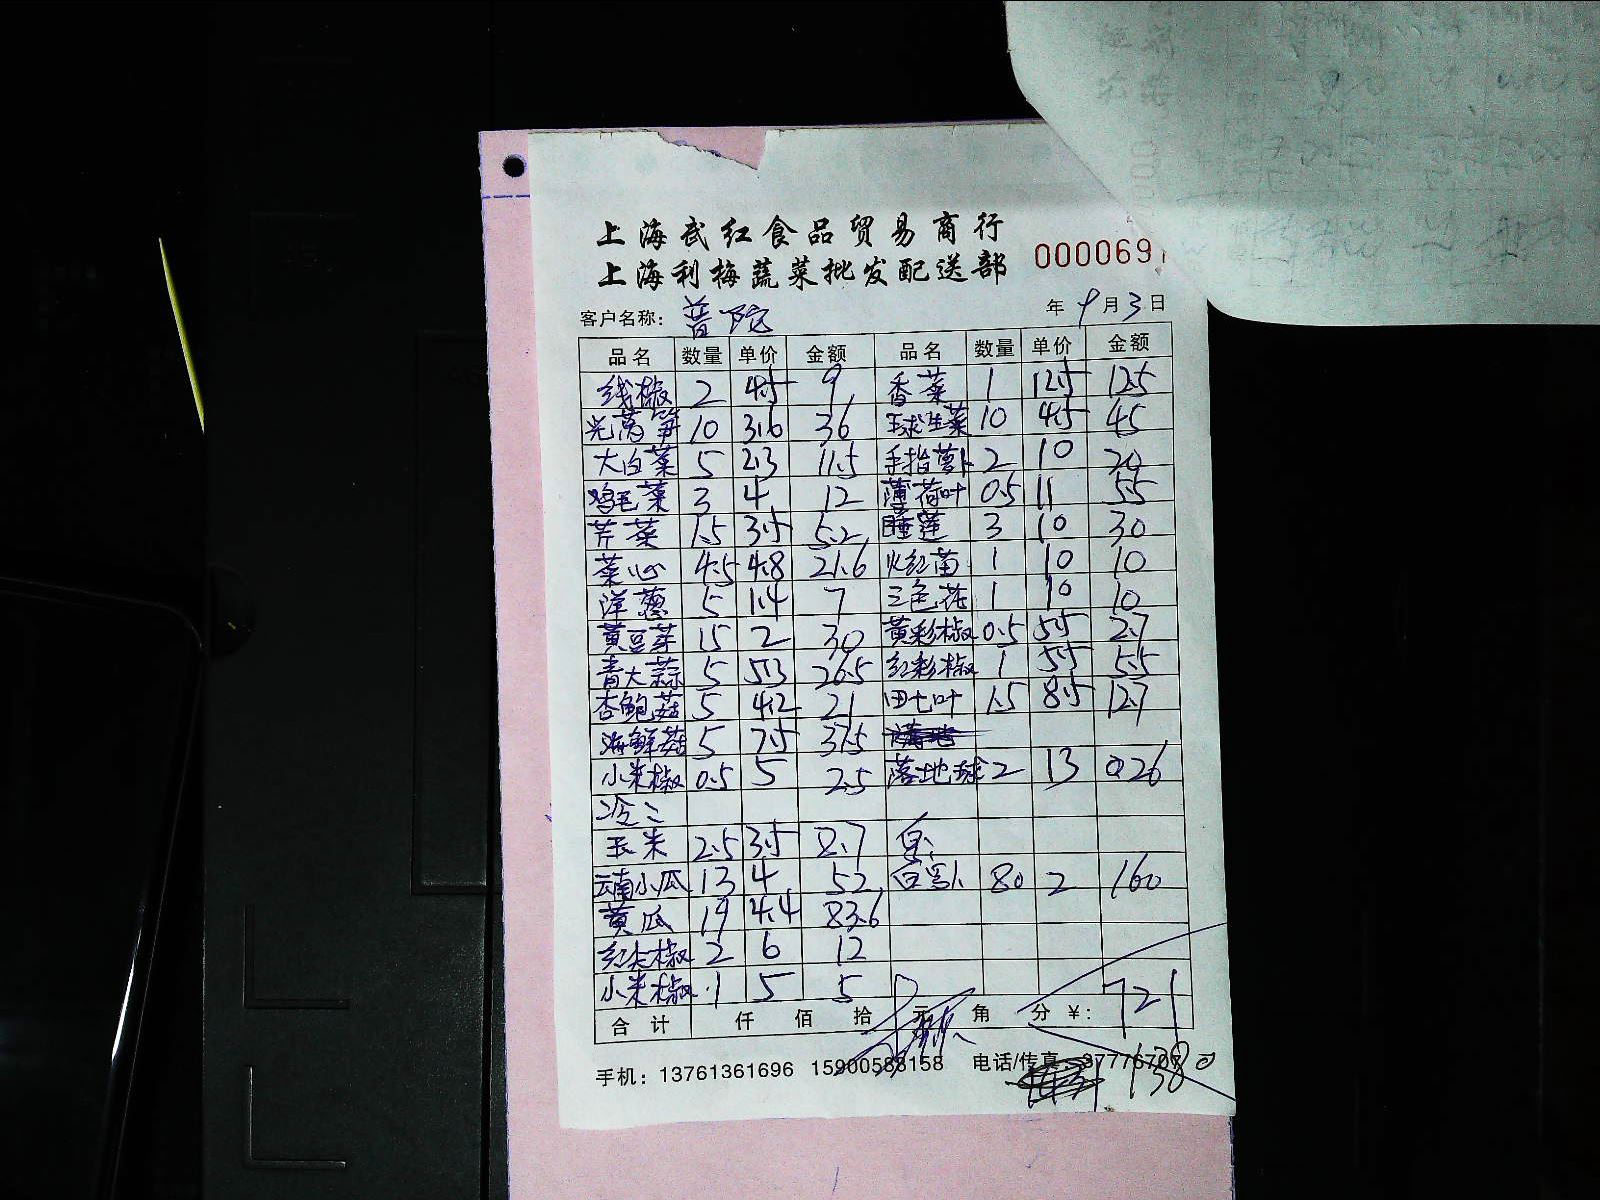 上海武红食品贸易商行
上海利梅蔬菜批发配送部
000069
客户名称: 普陀 年 9月3日
品名 数量 单价 金额 品名 数量 单价 金额
线椒 2 4.5 9 香菜 1 12.5 12.5
光莴笋 10 3.6 36 球生菜 10 4.5 45
大白菜 5 2.3 11.5 手指萝卜 2 10 20
鸡毛菜 3 4 12 薄荷叶 0.5 11 5.5
芹菜 1.5 3.5 5.2 睡莲 3 10 30
菜心 4.5 4.8 21.6 火红苗 1 10 10
洋葱 5 1.4 7 三色花 1 10 10
黄豆芽 15 2 30 黄彩椒 0.5 5.5 2.7
青大蒜 5 5.3 26.5 红彩椒 1 5.5 5.5
杏鲍菇 5 4.2 21 田七叶 1.5 8.5 12.7
海鲜菇 5 7.5 37.5
小米椒 0.5 5 2.5 落地球 2 13 26
冷二
玉米 2.5 3.5 8.7
云南小瓜 13 4 52 160 80 2
黄瓜 19 4.4 83.6
红尖椒 2 6 12
小米椒 1 5 5
合计 仟 佰 拾 元 角 分 ¥: 721
手机: 13761361696 15900588158 电话/传真: 37776707
1380